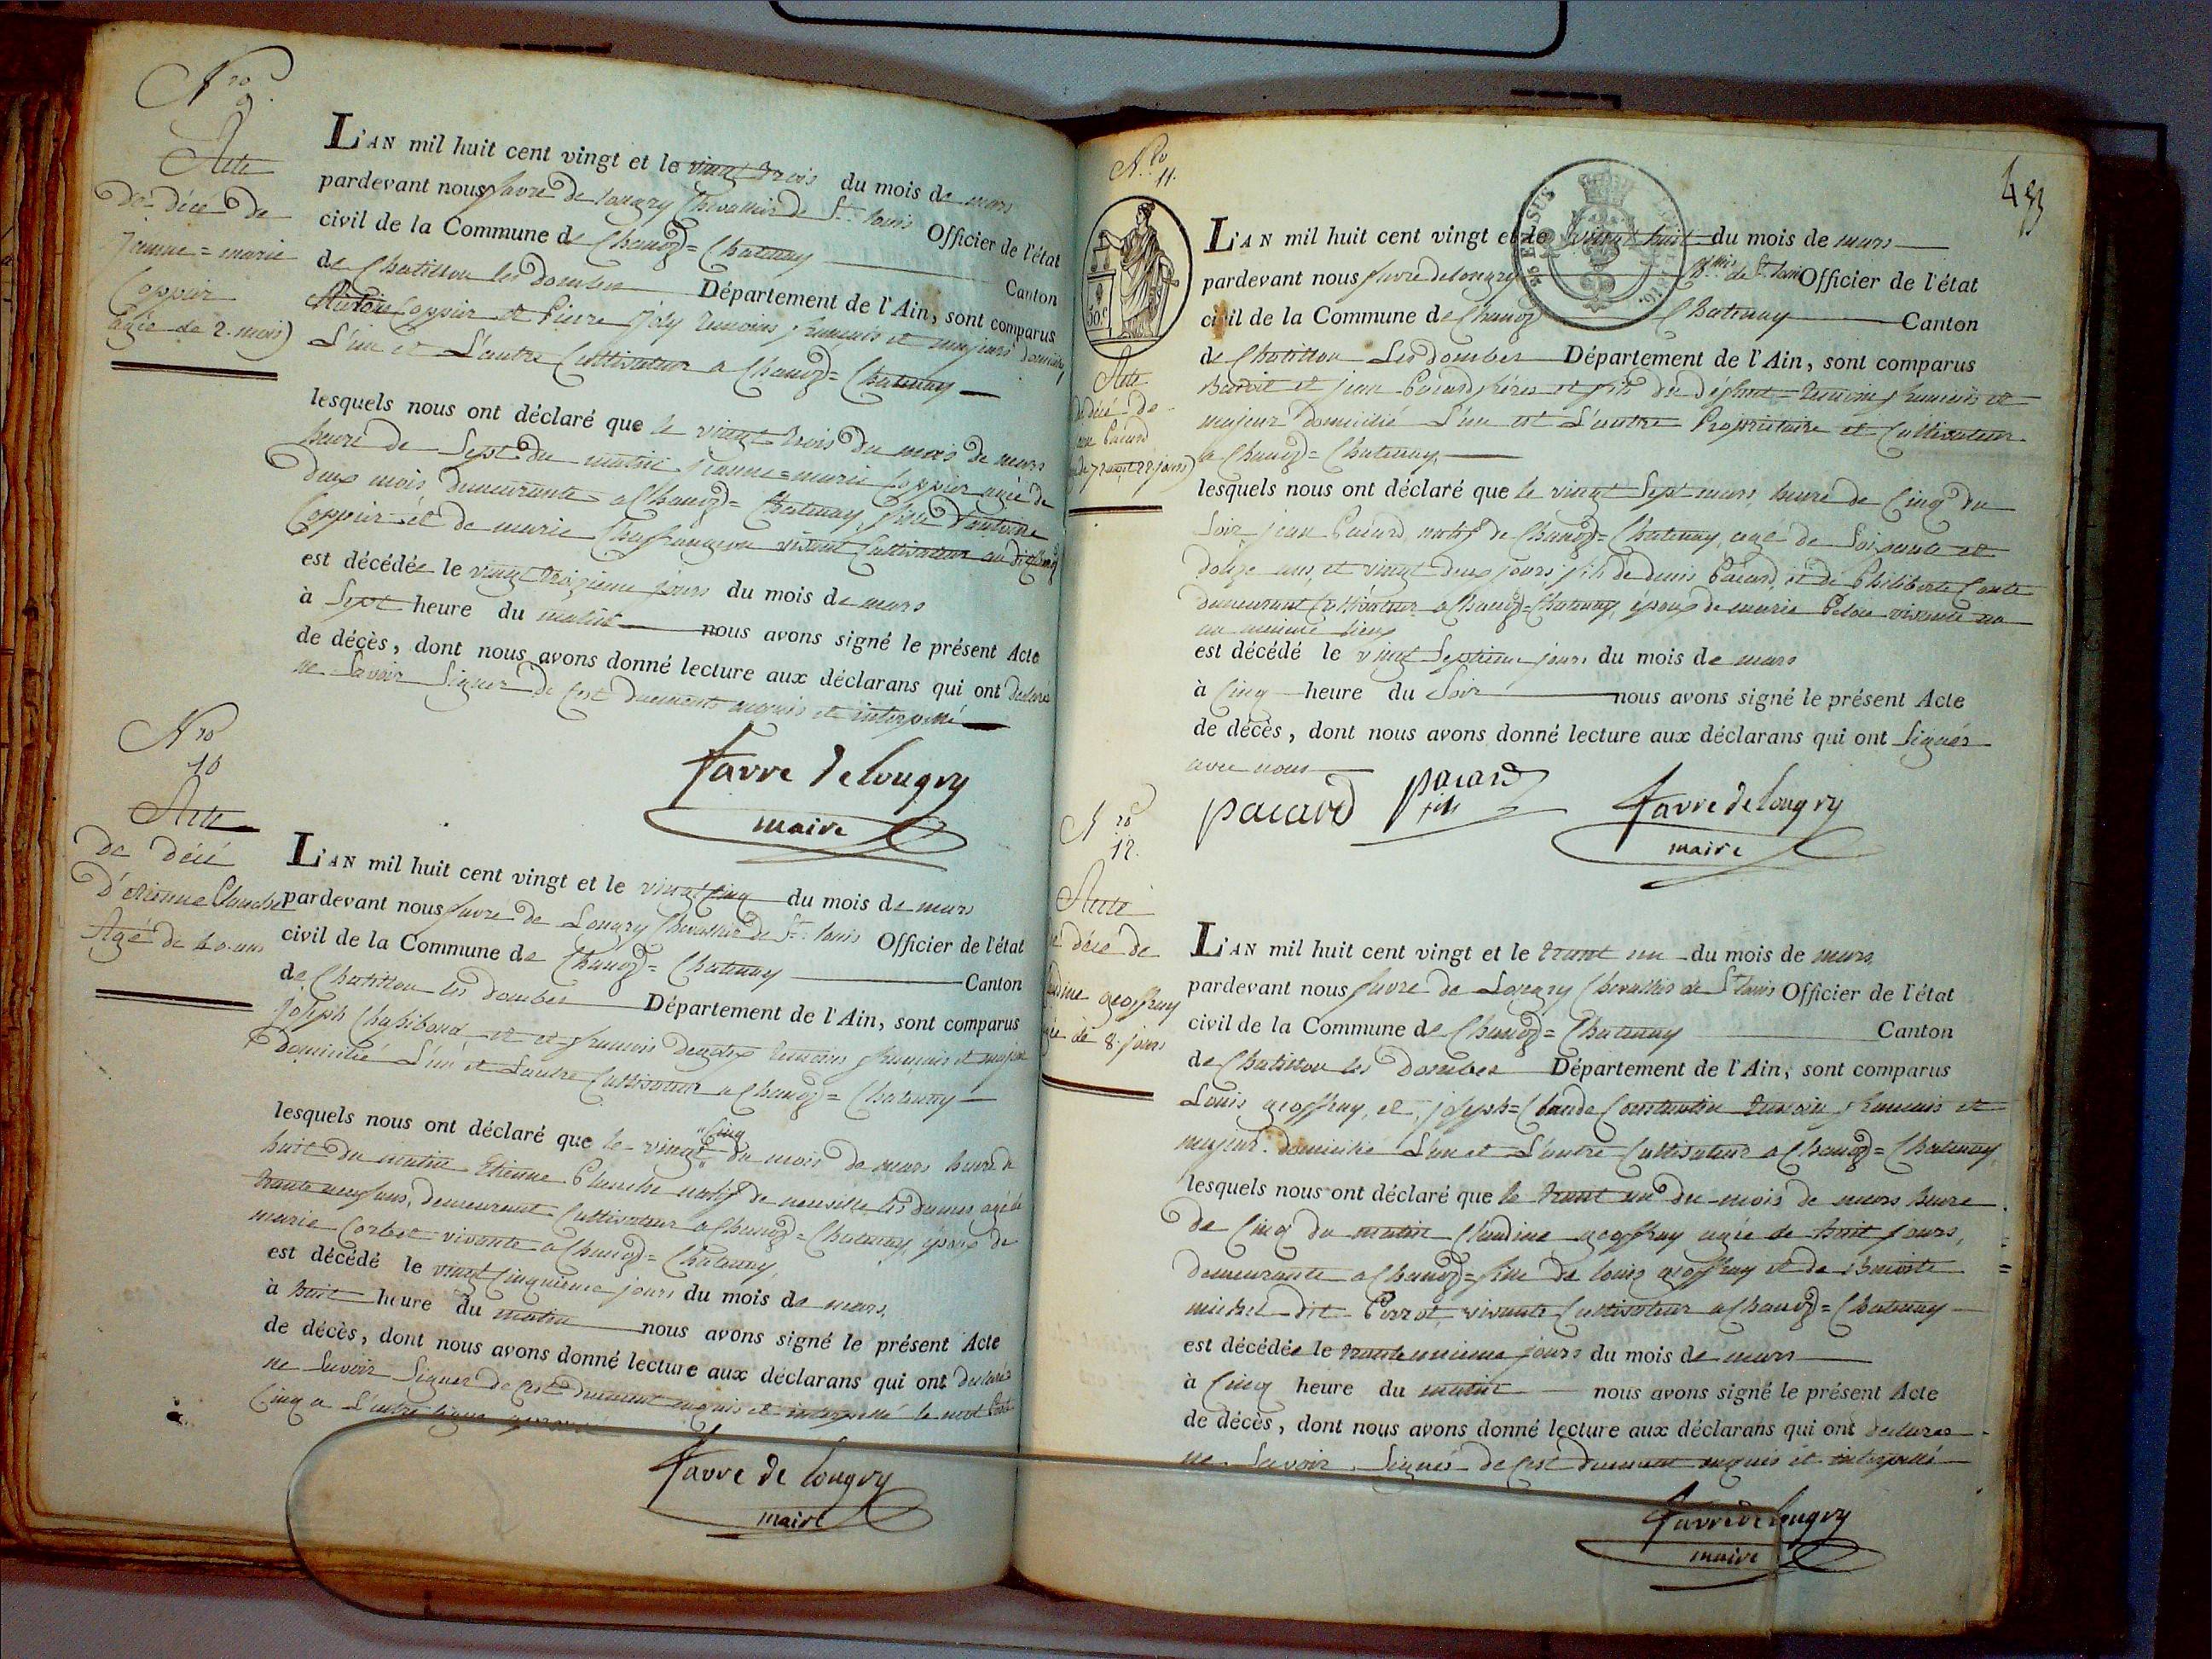 Nro
9.
Acte
de décé de
Jeanne = marie
Coppier
agée de 2. mois)
L'AN mil huit cent vingt et le vingt trois du mois de mars
pardevant nous favre de longry Chevallier de St. louis Officier de l'état
civil de la Commune de Chanoz = Chatenay Canton
de Chatillon les dombes Département de l'Ain, sont comparus
Antoine Coppier et Pierre Joly temoins francais et majeurs
L'un et L'autre Cultivateur a Chanoz = Chatenay
lesquels nous ont déclaré que le vingt trois du mois de mars
heure de Sept du matin jeanne = marie Coppier agée de
deux mois demeurante a Chanoz = Chatenay, fille d'antoine
Coppier et de marie vivant Cultivateur
est décédée le vingt troizieme jours du mois de mars
à Sept heure du matin nous avons signé le présent Acte
de décès, dont nous avons donné lecture aux déclarans qui ont declaré
ne Savoir Signer de Cest duement requis et interpellé
favre de longry
maire
Nro
10
Acte
de décé
D'etienne Planche
Agé de 40. ans
L'AN mil huit cent vingt et le vingt Cinq du mois de mars
pardevant nous favre de Longry Chevallier de St. louis Officier de l'état
civil de la Commune de Chanoz = Chatenay Canton
de Chatillon les dombes Département de l'Ain, sont comparus
Joseph et et francois temoins francais et majeur
domicilié L'un et Lautre Cultivateur a Chanoz = Chatenay
lesquels nous ont déclaré que le vingt "Cinq" du mois de mars heure de
huit du matin Etienne Planche natif de neuville les dames agé de
trante neuf ans, demeurant Cultivateur a Chanoz = Chatenay, époux de
marie vivante a Chanoz = Chatenay,
est décédé le vingt Cinquieme jours du mois de mars,
à huit heure du matin nous avons signé le présent Acte
de décès, dont nous avons donné lecture aux déclarans qui ont declarés
ne Savoir Signer de Cest duement requis et interpellé le mot
Cinq a L'entre ligne
favre de longry
maire
Nro
11.
50.c
453
Acte
de décé de
jean Pacard
L'AN mil huit cent vingt et le vingt huit du mois de mars
pardevant nous favre de longry de St. louis Officier de l'état
civil de la Commune de Chanoz Chatenay Canton
de Chatillon Les dombes Département de l'Ain, sont comparus
Benoit et jean Pacard fréres et fils du défunt temoins francais et
majeur domicilié L'un et L'autre Propriétaire et Cultivateur
a Chanoz = Chatenay,
lesquels nous ont déclaré que le vingt Sept mars, heure de Cinq du
Soir jean Pacard natif de Chanoz = Chatenay, agé de Soixante et
douze ans, et vingt deux jours, fils de denis Pacard, et de Philiberte
demeurant Cultivateur a Chanoz = Chatenay, époux de marie vivante au
au meme lieux
est décédé le vingt Septieme jours du mois de mars
à Cinq heure du Soir nous avons signé le présent Acte
de décès, dont nous avons donné lecture aux déclarans qui ont Signés
avec nous
pacard pacard fils favre de longry
maire
Nro
12.
Acte
de décé de
Claudine geoffray
agée de 8. jours
L'AN mil huit cent vingt et le trant un du mois de mars,
pardevant nous favre de Longry Chevallier de St louis Officier de l'état
civil de la Commune de Chanoz = Chatenay Canton
de Chatillon les dombes Département de l'Ain, sont comparus
Louis geoffray, et, joseph = Claude Constantin temoin francais et
majeur domicilié L'un et L'autre Cultivateur a Chanoz = Chatenay,
lesquels nous ont déclaré que le trant un du mois de mars heure
de Cinq du matin Claudine geoffray agée de huit jours,
demeurante a Chanoz = fille de louis geoffray et de Benoite
michel dit Perrot vivante Cultivateur a Chanoz = Chatenay
est décédée le trante unieme jours du mois de mars
à Cinq heure du matin nous avons signé le présent Acte
de décès, dont nous avons donné lecture aux déclarans qui ont declares
ne Savoir Signés de Cest duement requis et interpellé
favre de longry
maire